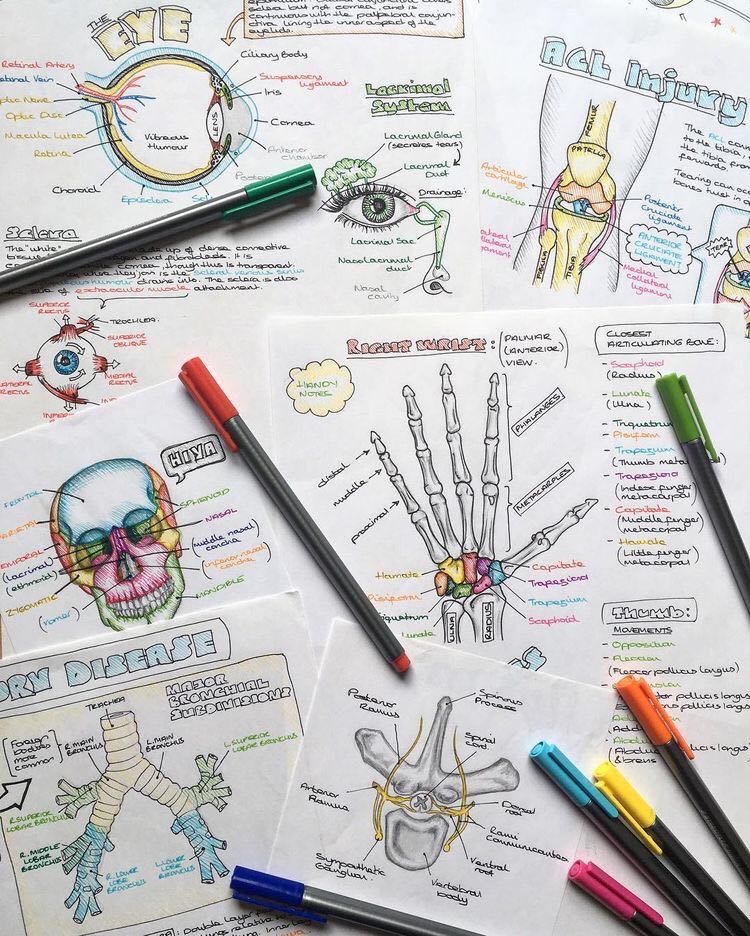 THE
EYE
sclera but not cornea, and is
continuous with the palpebral conjun-
ctive lining the inner aspect of the
eyelids.
Retinal Artery
Retinal Vein
Optic Nerve
Optic Disc
Macula Lutea
Retina
Choroid
Episclera
Vitreous
Humour
LENS
Ciliary Body
Suspensory
ligament
Iris
Cornea
Anterior
chamber
Lacrimal
System
Lacrimal Gland
(secretes tears)
Lacrimal
Duct
Drainage:
Lacrimal Sac
Nasolacrimal
duct
Nasal
cavity
Sclera
The "white"
made up of dense connective
and fibroblasts. It is
though this is transparent
where they join is the scleral venous sinus
humour drains into. The sclera is also
the site of extraocular muscle attachment.
SUPERIOR
RECTUS
TROCHLEA
SUPERIOR
OBLIQUE
MEDIAL
RECTUS
LATERAL
RECTUS
ACL Injury
FEMUR
PATELLA
Articular
cartilage
Meniscus
Lateral
collateral
ligament
FIBULA
TIBIA
Posterior
Cruciate
ligament
ANTERIOR
CRUCIATE
LIGAMENT
Medial
collateral
ligament
The ACL
to the tibia
the tibia from
forwards.
Tearing can
bones twist in
RIGHT WRIST: PALMAR
(ANTERIOR)
VIEW.
HANDY
NOTES
distal
middle
proximal
PHALANGES
METACARPLES
Hamate
Pisiform
Triquetrum
Lunate
ULNA
RADIUS
Capitate
Trapezoid
Trapezium
Scaphoid
CLOSEST
ARTICULATING BONE:
- Scaphoid
(Radius)
- Lunate
(Ulna)
- Triquetrum
- Pisiform
- Trapezium
(Thumb metacarpal)
- Trapezoid
(Index finger
metacarpal)
- Capitate
(Middle finger
metacarpal)
- Hamate
(Little finger
metacarpal)
Thumb:
MOVEMENTS
- Opposition
- Flexion
(Flexor pollicis longus)
pollicis longus
HIYA
FRONTAL
PARIETAL
TEMPORAL
(lacrimal)
(ethmoid)
ZYGOMATIC
(vomer)
SPHENOID
NASAL
(middle nasal
concha)
(inferior nasal
concha)
MANDIBLE
ORY DISEASE
MAJOR
BRONCHIAL
SUBDIVISIONS
TRACHEA
Foreign
bodies
more
common
R.MAIN
BRONCHUS
L.MAIN
BRONCHUS
L.SUPERIOR
LOBAR BRONCHUS
R.SUPERIOR
LOBAR BRONCHUS
R.MIDDLE
LOBAR
BRONCHUS
R.LOWER
LOBE
BRONCHUS
L.LOWER
LOBE
BRONCHUS
Posterior
Ramus
Spinous
Process
Spinal
cord
Anterior
Ramus
Dorsal
root
Rami
Communicantes
Ventral
root
Sympathetic
Ganglion
Vertebral
body